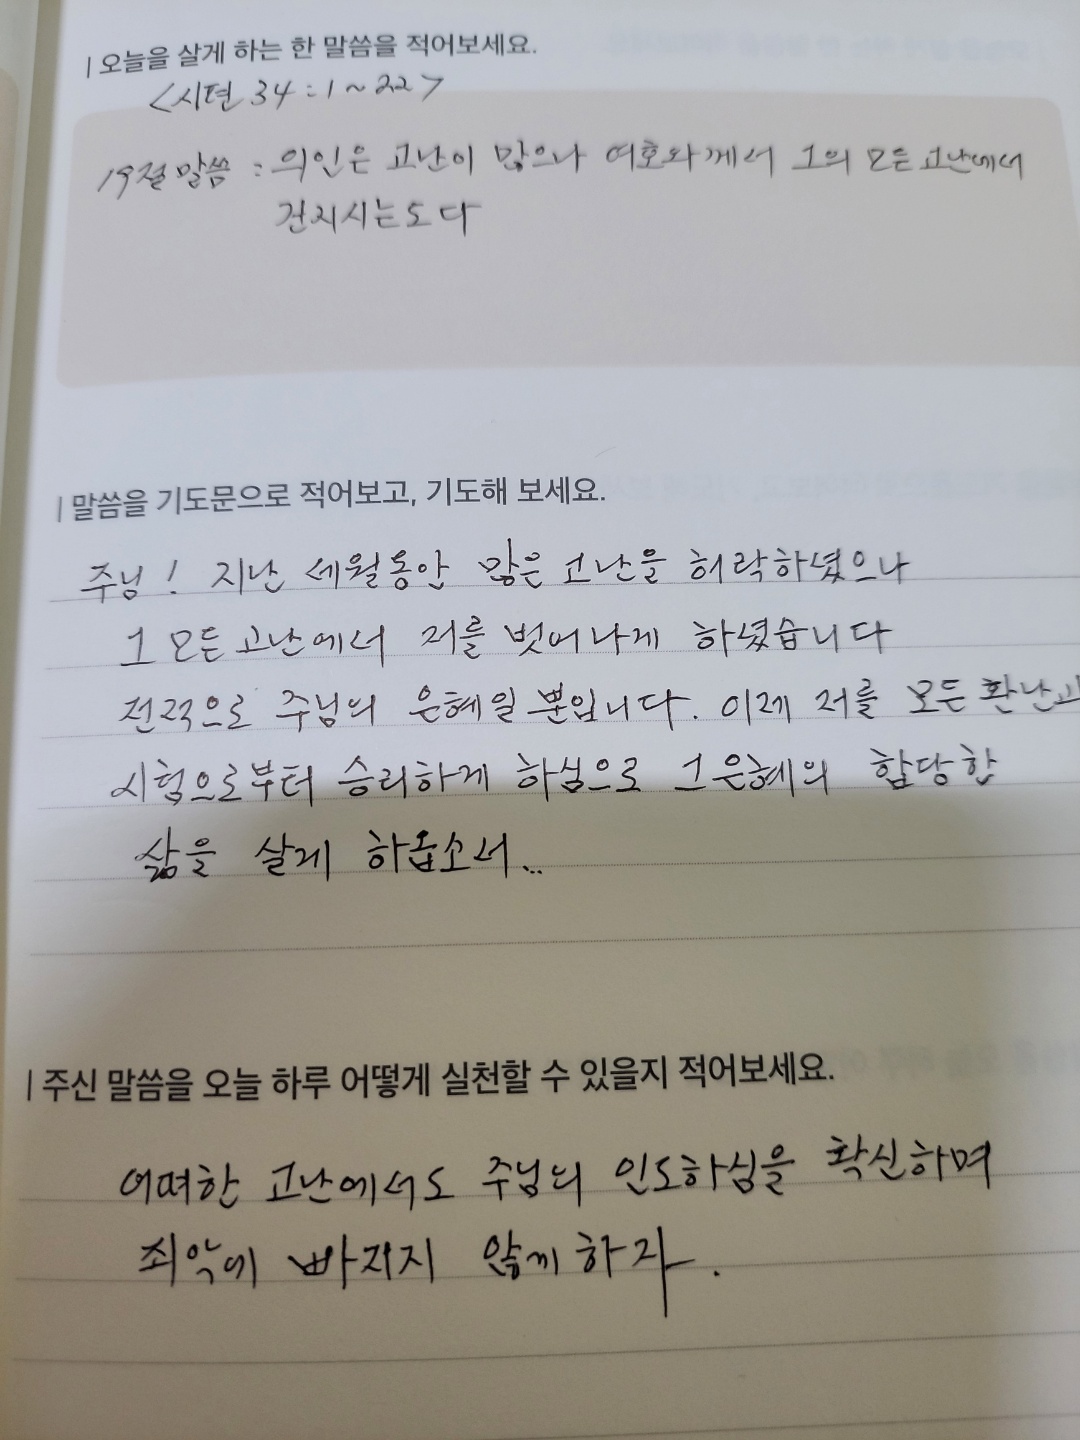 | 오늘을 살게 하는 한 말씀을 적어보세요.
<시편 34:1~22>
19절 말씀 : 의인은 고난이 많으나 여호와께서 그의 모든 고난에서
건지시는도다
| 말씀을 기도문으로 적어보고, 기도해 보세요.
주님! 지난 세월동안 많은 고난을 허락하셨으나
그 모든 고난에서 저를 벗어나게 하셨습니다
전적으로 주님의 은혜일 뿐입니다. 이제 저를 모든 환난과
시험으로부터 승리하게 하심으로 그 은혜의 합당한
삶을 살게 하옵소서..
| 주신 말씀을 오늘 하루 어떻게 실천할 수 있을지 적어보세요.
어떠한 고난에서도 주님의 인도하심을 확신하며
죄악에 빠지지 않게 하자.